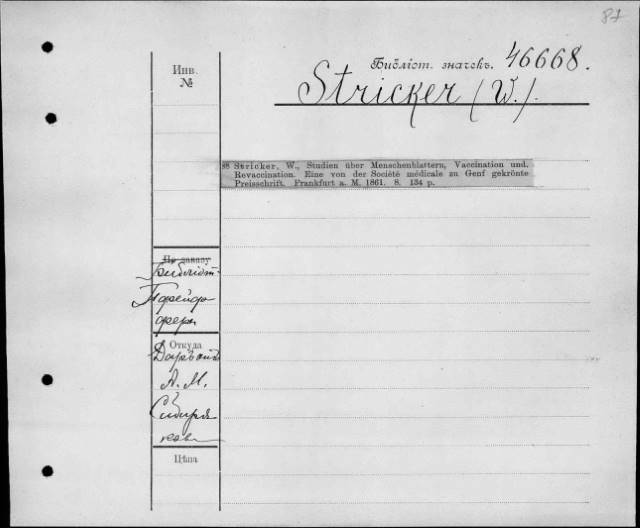 87
Библіот. значекъ. 46668.
Stricker (W.).
Инв.
№
88 Stricker, W., Studien über Menschenblattern, Vaccination und.
Revaccination. Eine von der Société médicale zu Genf gekrönte
Preisschrift. Frankfurt a. M. 1861. 8. 134 p.
По заказу
Библіот.
Пфейфф
фера
Откуда
Даръ отъ
А. М.
Сибиря
кова
Цѣна